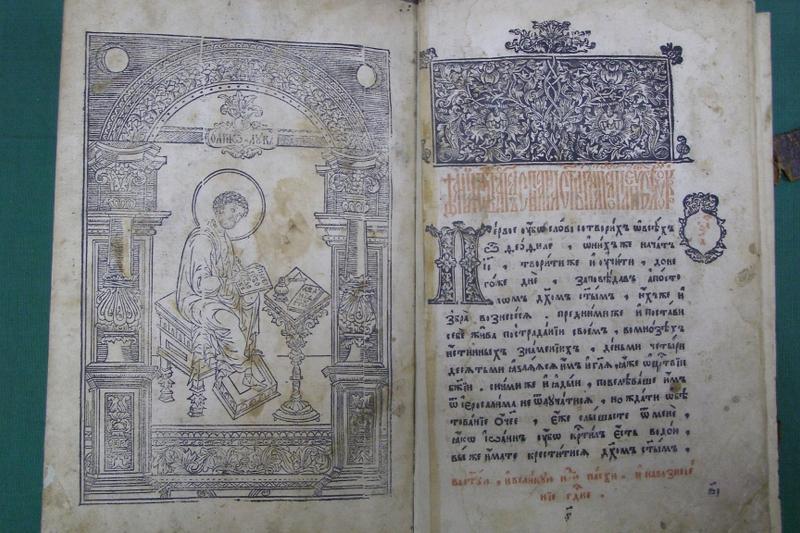 Первое оубо слово сотворихъ ѡ всѣхъ
ѽ Ѳеѡфиле , ѡ нихже начатъ
Іс҃ , творитиже и оучити , доне
гоже дн҃е , заповѣдавъ апосто
лѡмъ дх҃омъ ст҃ымъ , ихъже и
збра вознесесѧ . предними же и постави
себе жива пострадании своемъ , во мнозѣхъ
истинныхъ знаменїихъ , деньми четыри
десѧтьми ꙗвлѧѧсѧ имъ и гл҃ѧ ꙗже ѡ цр҃ствїи
бж҃їи . с нимиже и ꙗдыи , повелѣваше имъ
ѿ Іеросалима не ѿлучатисѧ , но ждати ѡбѣ
тованїе ѻч҃ее , еже слышасте ѿ мене ,
ꙗко Іѡаннъ оубо крт҃илъ есть водою ,
вы же имате креститисѧ дх҃омъ ст҃ымъ .